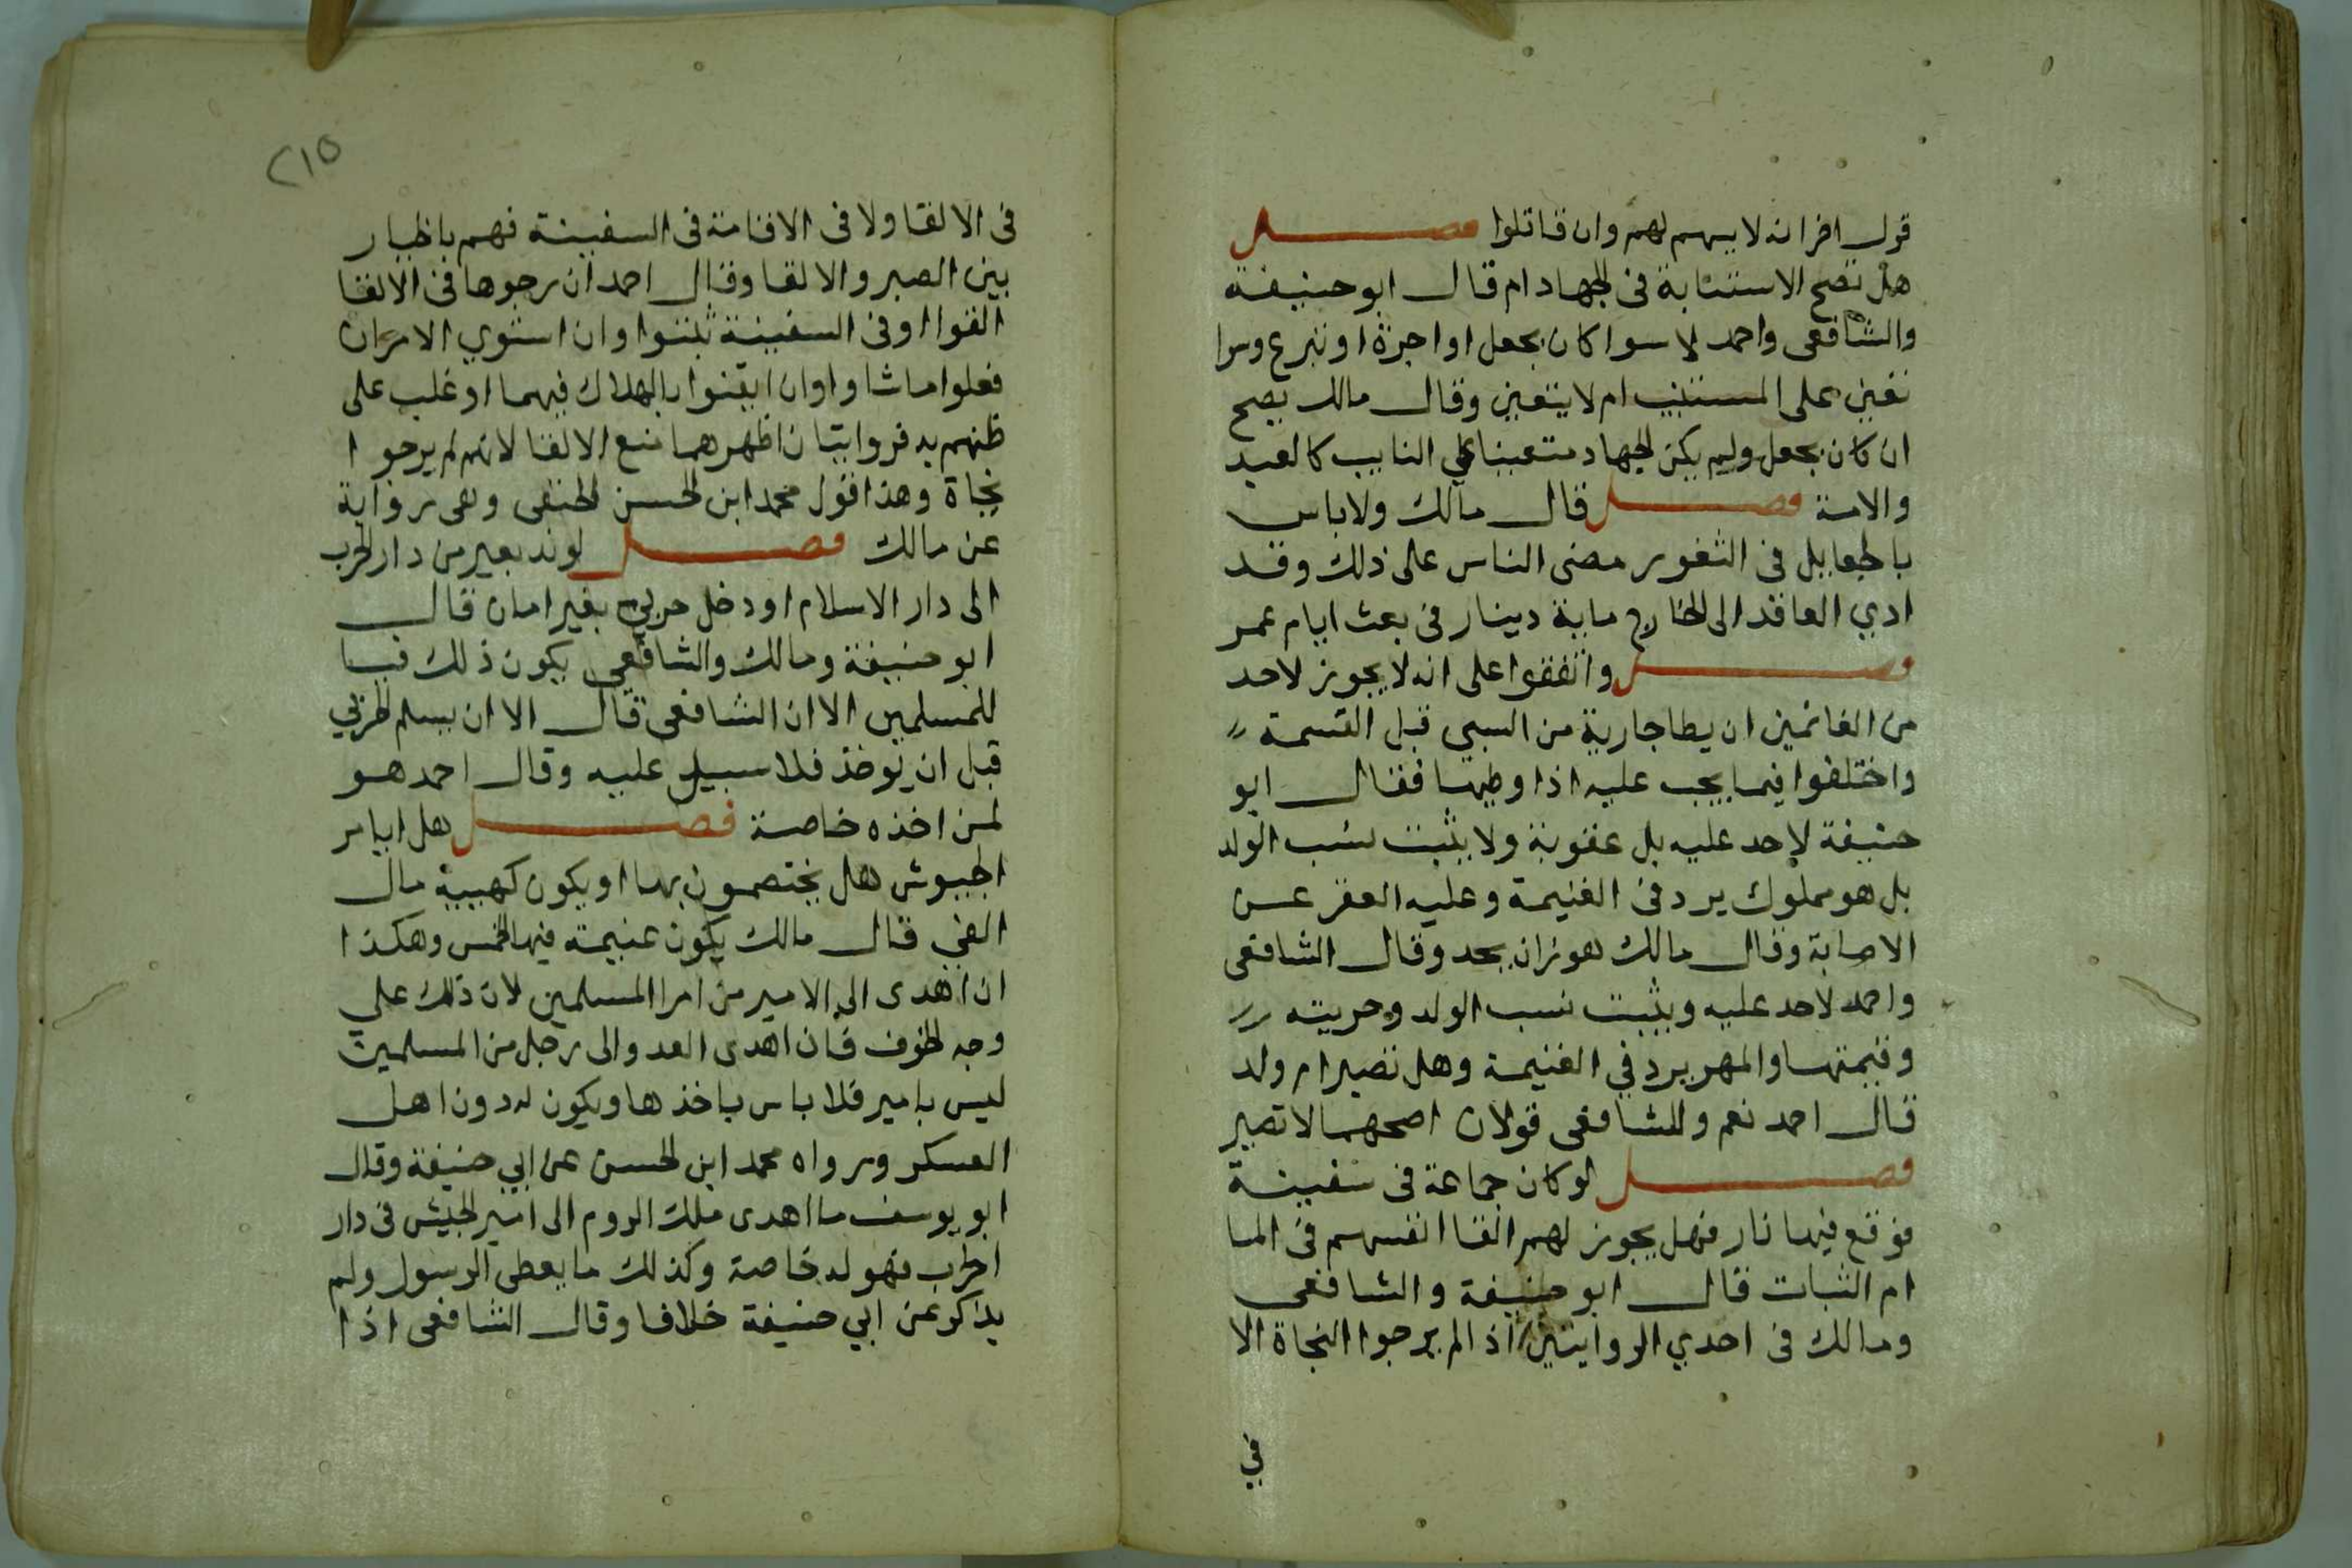 قول اخر انه لا يسهم لهم وان قاتلوا فصل
هل تصح الاستنابة فى الجهاد ام قال ابو حنيفة
والشافعى واحمد لا سوا كان بجعل او اجرة او تبرع وسوا
تعين على المستنيب ام لا يتعين وقال مالك يصح
ان كان بجعل ولم يكن الجهاد متعينا على النايب كالعبد
والامة فصل قال مالك ولا باس
بالجعايل فى الثغور مضى الناس على ذلك وقد
ادي القاعد الى الخارج ماية دينار فى بعث ايام عمر
فصل واتفقوا على انه لا يجوز لاحد
من الغانمين ان يطا جارية من السبي قبل القسمة
واختلفوا فيما يجب عليه اذا وطيها فقال ابو
حنيفة لا حد عليه بل عقوبة ولا يثبت نسب الولد
بل هو مملوك يرد فى الغنيمة وعليه العقر عن
الاصابة وقال مالك هو زان يحد وقال الشافعى
واحمد لا حد عليه ويثبت نسب الولد وحريته
وقيمتها والمهر يرد في الغنيمة وهل تصير ام ولد
قال احمد نعم وللشافعى قولان اصحهما لا تصير
فصل لو كان جماعة فى سفينة
فوقع فيها نار فهل يجوز لهم القا انفسهم فى الما
ام الثبات قال ابو حنيفة والشافعى
ومالك فى احدي الروايتين اذا لم يرجوا النجاة الا
في
٢١٥
فى الالقا ولا فى الاقامة فى السفينة فهم بالخيار
بين الصبر والالقا وقال احمد ان رجوها فى الالقا
القوا او فى السفينة ثبتوا وان استوي الامران
فعلوا ما شاوا وان ايقنوا بالهلاك فيهما او غلب على
ظنهم به فروايتان اظهرهما منع الالقا لانهم لم يرجوا
نجاة وهذا قول محمد ابن الحسن الحنفى وهى رواية
عن مالك فصل لو ند بعير من دار الحرب
الى دار الاسلام او دخل حربي بغير امان قال
ابو حنيفة ومالك والشافعى يكون ذلك فيا
للمسلمين الا ان الشافعى قال الا ان يسلم الحربي
قبل ان يوخذ فلا سبيل عليه وقال احمد هو
لمن اخذه خاصة فصل هل ايامر
الجيوش هل يختصمون بها او يكون كهيية مال
الفي قال مالك يكون غنيمة فيها الخمس وهكذا
ان اهدى الى الامير من امرا المسلمين لان ذلك علي
وجه الخوف فان اهدى العدو الى رجل من المسلمين
ليس بامير فلا باس باخذها ويكون له دون اهل
العسكر ورواه محمد ابن الحسن عن ابي حنيفة وقال
ابو يوسف ما اهدى ملك الروم الى امير الجيش فى دار
الحرب فهو له خاصة وكذلك ما يعطى الرسول ولم
يذكر عن ابي حنيفة خلافا وقال الشافعى اذا